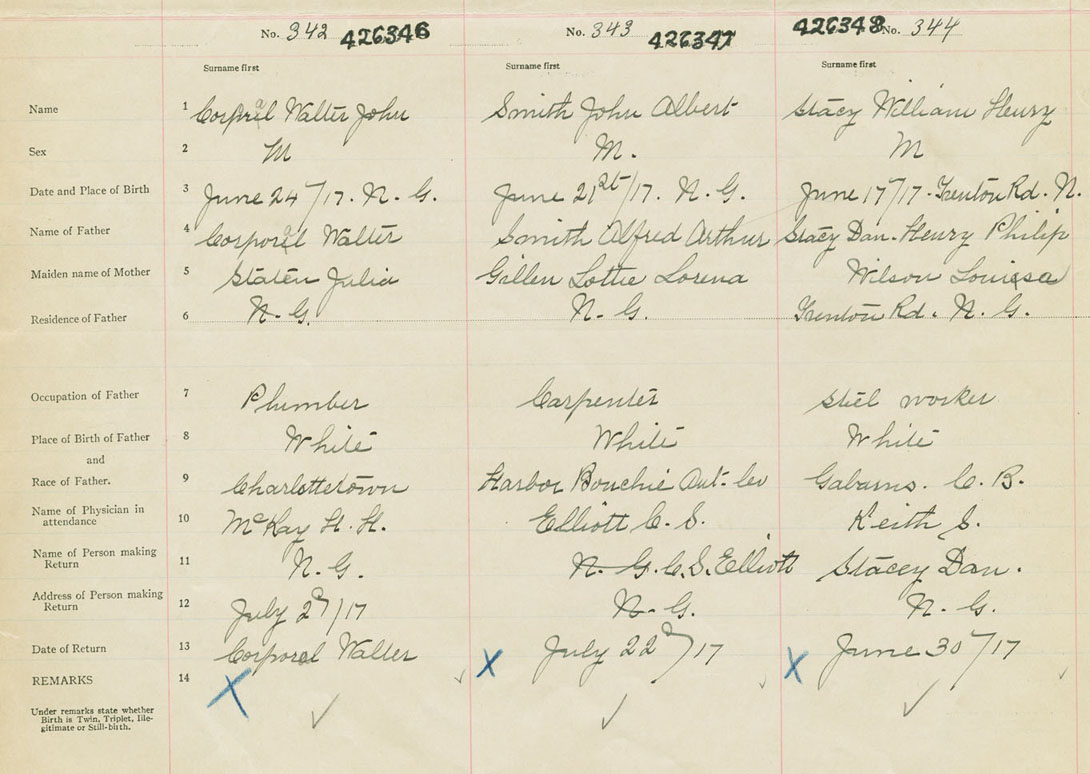 No. 342 426346 No. 343 426347 426348 No. 344
Surname first Surname first Surname first
Name 1 Corporal Walter John Smith John Albert Stacy William Henry
Sex 2 M M. M
Date and Place of Birth 3 June 24/17. N. G. June 21st/17. N. G. June 17/17. Trenton Rd. N.
Name of Father 4 Corporal Walter Smith Alfred Arthur Stacy Dan. Henry Philip
Maiden name of Mother 5 Staten Julia Gillen Lottie Lorena Wilson Louisa
Residence of Father 6 N. G. N. G. Trenton Rd. N. G.
Occupation of Father 7 Plumber Carpenter Steel worker
Place of Birth of Father 8 White White White
and
Race of Father. 9 Charlottetown Harbor Bouchie Ant. Gabarus. C. B.
Name of Physician in
attendance 10 McKay H. H. Elliott C. S. Keith S.
Name of Person making
Return 11 N. G. N. G. C. S. Elliott Stacey Dan.
Address of Person making
Return 12 July 2/17 N. G. N. G.
Date of Return 13 Corporal Walter X July 22/17 X June 30/17
REMARKS 14 X
Under remarks state whether
Birth is Twin, Triplet, Ille-
gitimate or Still-birth.